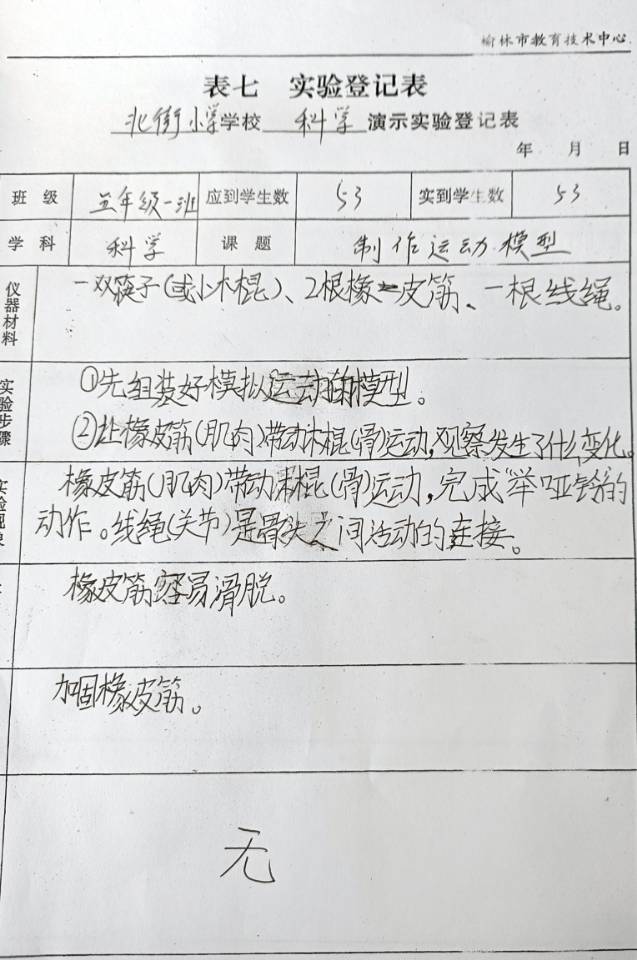 榆林市教育技术中心
表七 实验登记表
北街小学学校 科学 演示实验登记表
年 月 日
班 级 五年级一班 应到学生数 53 实到学生数 53
学 科 科学 课 题 制作运动模型
仪器材料 一双筷子(或小木棍)、2根橡皮筋、一根线绳。
实验步骤 ①先组装好模拟运动的模型。
②让橡皮筋(肌肉)带动木棍(骨)运动,观察发生了什么变化。
实验现象 橡皮筋(肌肉)带动木棍(骨)运动,完成“举哑铃”的
动作。线绳(关节)是骨头之间活动的连接。
橡皮筋容易滑脱。
加固橡皮筋。
无